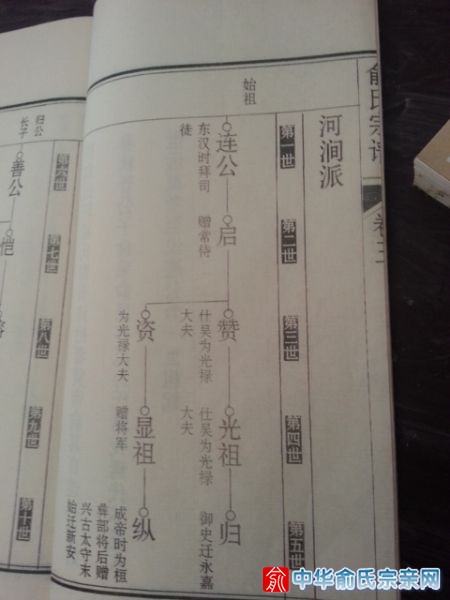 俞氏宗谱
卷二
河涧派
第一世
第二世
第三世
第四世
第五世
始祖
连公
东汉时拜司
徒
启
赠常待
赞
仕吴为光禄
大夫
光祖
仕吴为光禄
大夫
归
御史迁永嘉
资
为光禄大夫
显祖
赠将军
纵
成帝时为桓
彝部将后赠
兴古太守末
始迁新安
第六世
第七世
第八世
第九世
第十世
归公
长子
善公
恺
俞
中华俞氏宗亲网